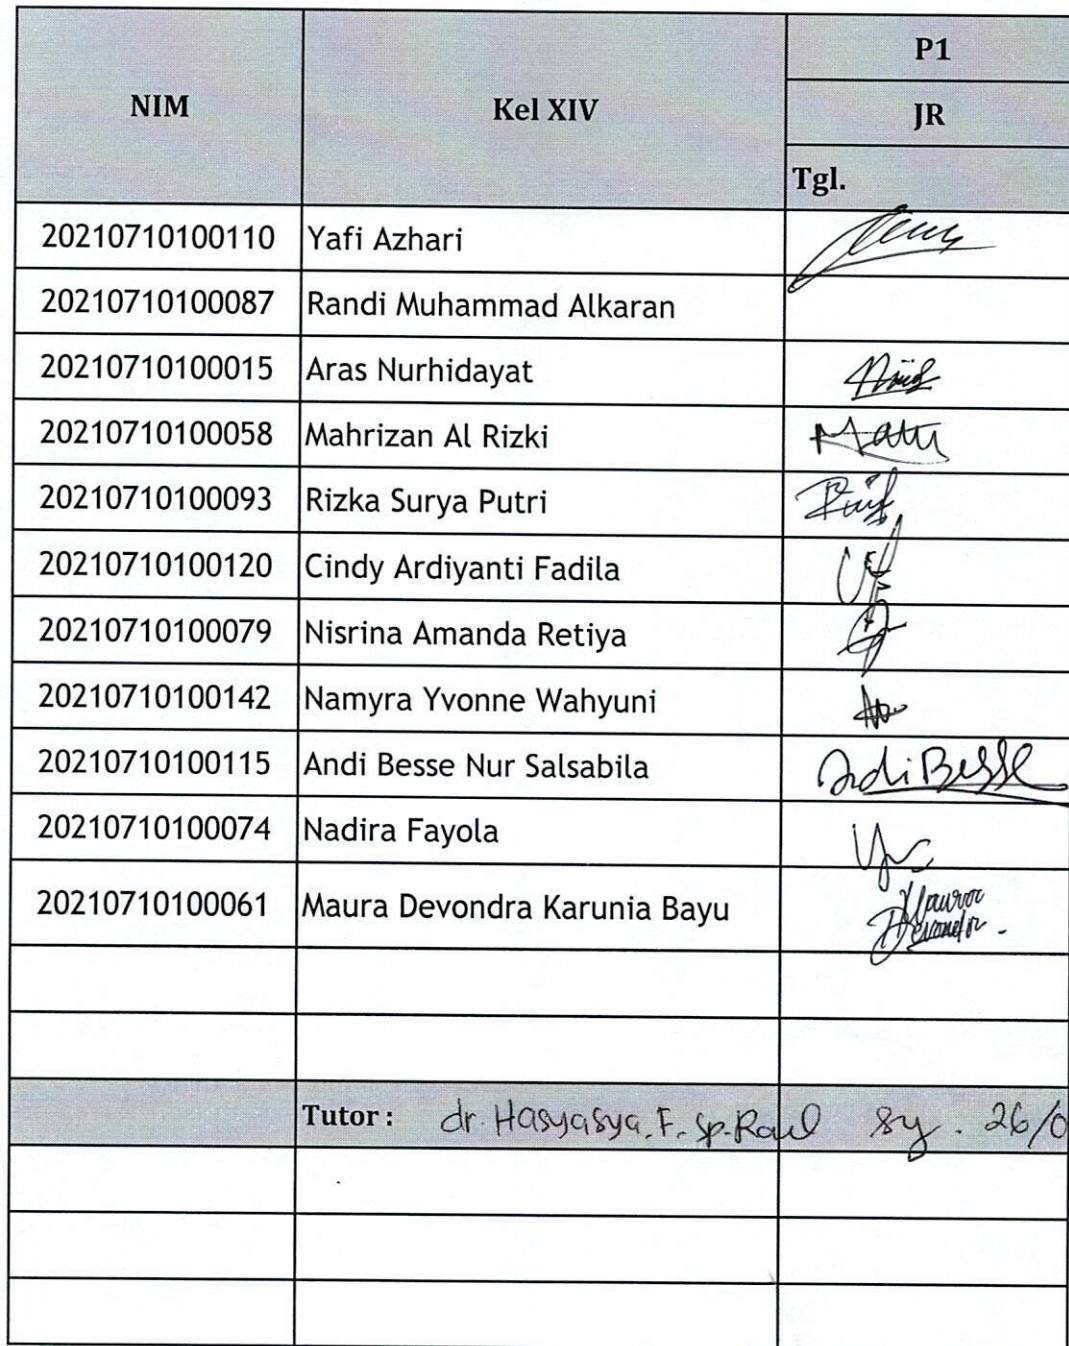 P1
NIM Kel XIV JR
Tgl.
20210710100110 Yafi Azhari
20210710100087 Randi Muhammad Alkaran
20210710100015 Aras Nurhidayat
20210710100058 Mahrizan Al Rizki
20210710100093 Rizka Surya Putri
20210710100120 Cindy Ardiyanti Fadila
20210710100079 Nisrina Amanda Retiya
20210710100142 Namyra Yvonne Wahyuni
20210710100115 Andi Besse Nur Salsabila Andi Besse
20210710100074 Nadira Fayola
20210710100061 Maura Devondra Karunia Bayu Maura
Devondra
Tutor : dr. Hasyasya. F. Sp. Rad 26/0